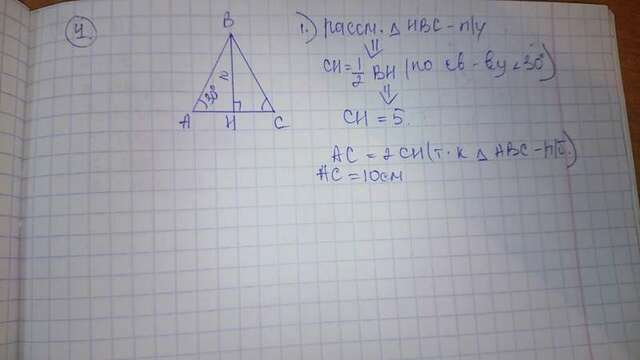 4
B
30°
A
H
C
1.) рассм. △ HBC - п/у
⇓
CH = 1/2 BH (по св-ву ∠30°)
⇓
CH = 5.
AC = 2 CH (т.к △ ABC - п/б.)
AC = 10см